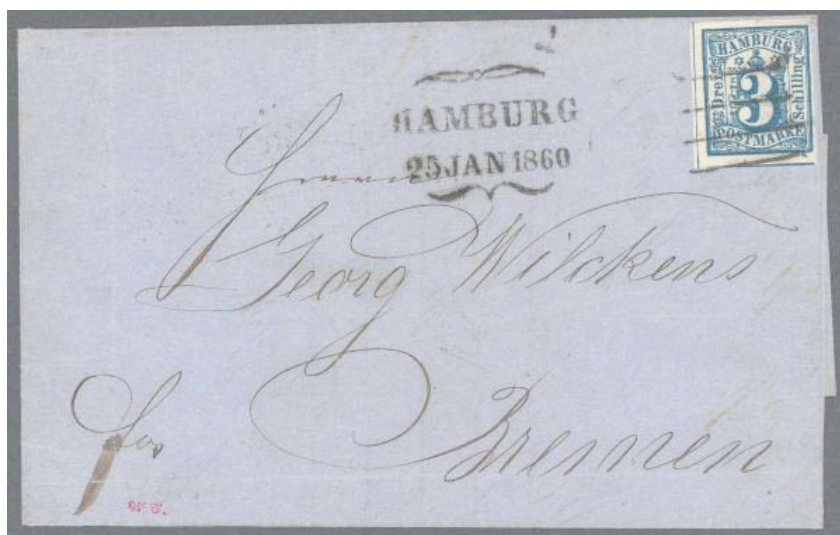 HAMBURG
25 JAN 1860
HAMBURG
Drei
3
Schilling
POSTMARKE
Herrn
Georg Wilckens
Bremen